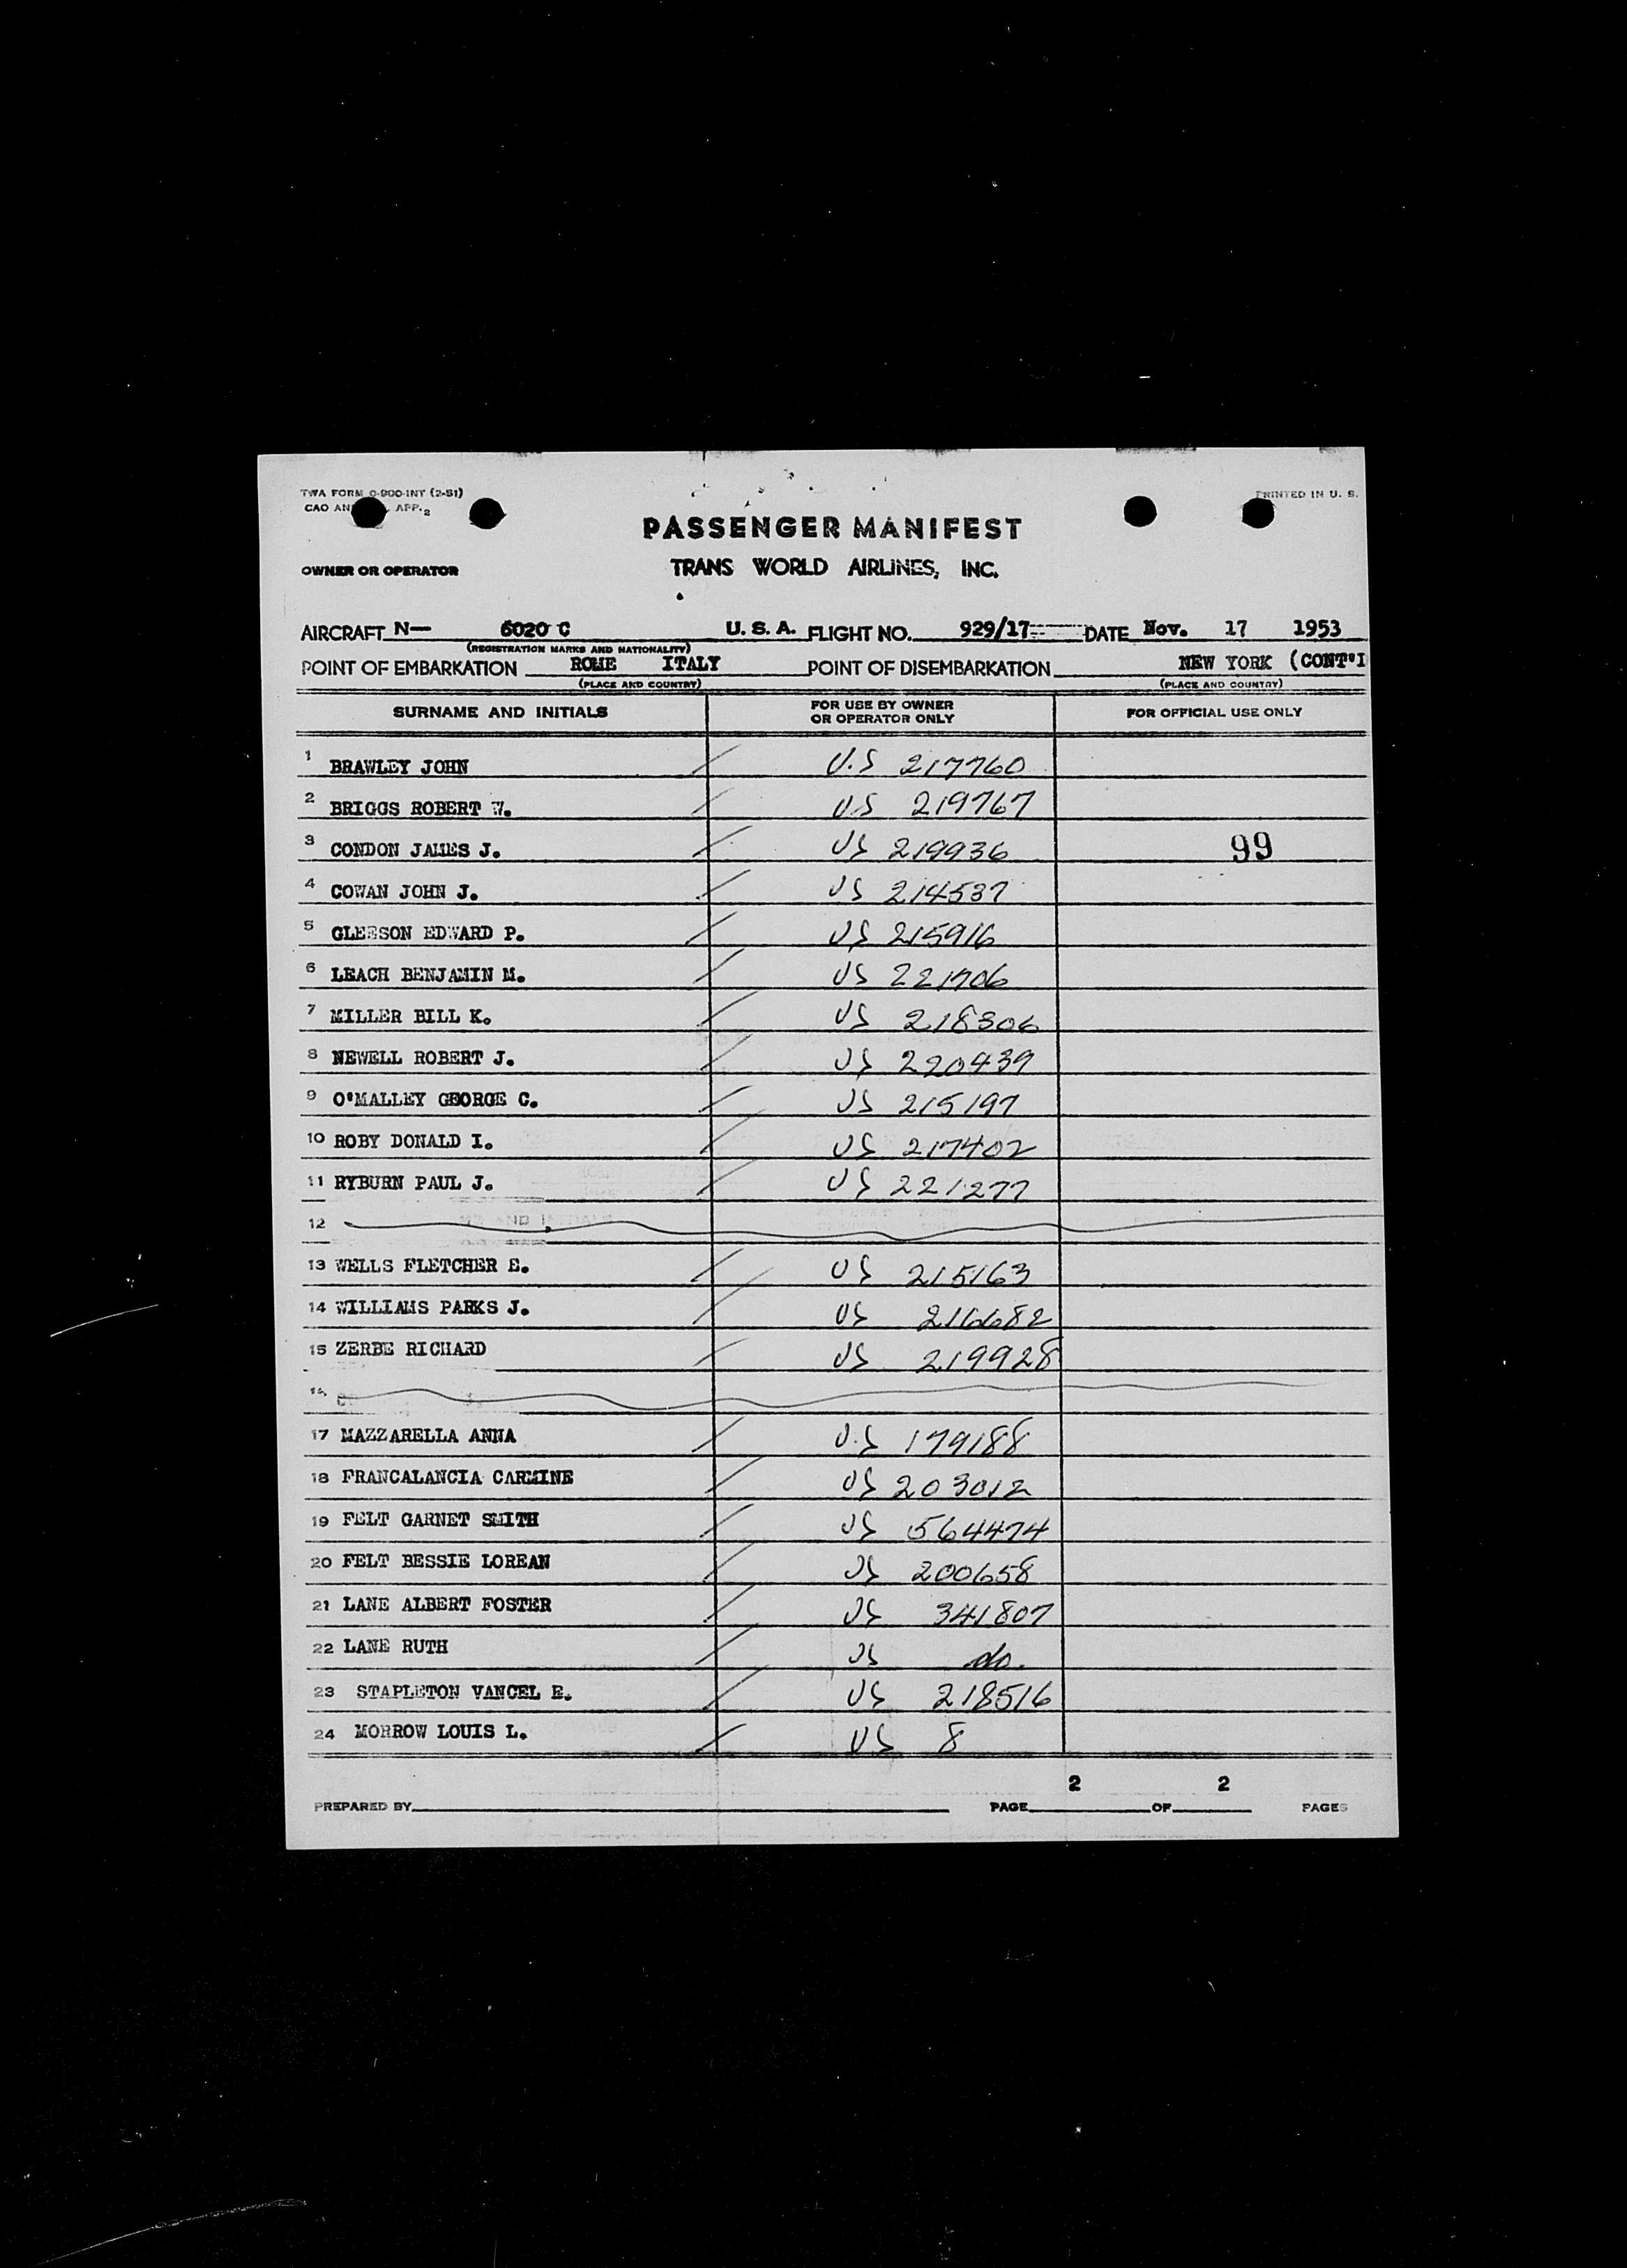 TWA FORM O-900-INT (2-51)
PRINTED IN U. S.
CAO AN APP. 2
PASSENGER MANIFEST
OWNER OR OPERATOR TRANS WORLD AIRLINES, INC.
AIRCRAFT N— 6020 C U. S. A. FLIGHT NO. 929/17 DATE Nov. 17 1953
(REGISTRATION MARKS AND NATIONALITY)
POINT OF EMBARKATION ROME ITALY POINT OF DISEMBARKATION NEW YORK (CONT'I
(PLACE AND COUNTRY) (PLACE AND COUNTRY)
SURNAME AND INITIALS FOR USE BY OWNER OR OPERATOR ONLY FOR OFFICIAL USE ONLY
1 BRAWLEY JOHN U.S 217760
2 BRIGGS ROBERT W. US 219767
3 CONDON JAMES J. US 219936 99
4 COWAN JOHN J. US 214537
5 GLEESON EDWARD P. US 215916
6 LEACH BENJAMIN M. US 221706
7 MILLER BILL K. US 218306
8 NEWELL ROBERT J. US 220439
9 O'MALLEY GEORGE C. US 215197
10 ROBY DONALD I. US 217402
11 RYBURN PAUL J. US 221277
12
13 WELLS FLETCHER E. US 215163
14 WILLIAMS PARKS J. US 216682
15 ZERBE RICHARD US 219928
16
17 MAZZARELLA ANNA U.S 179188
18 FRANCALANCIA CARMINE US 203012
19 FELT GARNET SMITH US 564474
20 FELT BESSIE LOREAN US 200658
21 LANE ALBERT FOSTER US 341807
22 LANE RUTH US do.
23 STAPLETON VANCEL E. US 218516
24 MORROW LOUIS L. US 8
PREPARED BY PAGE 2 OF 2 PAGES